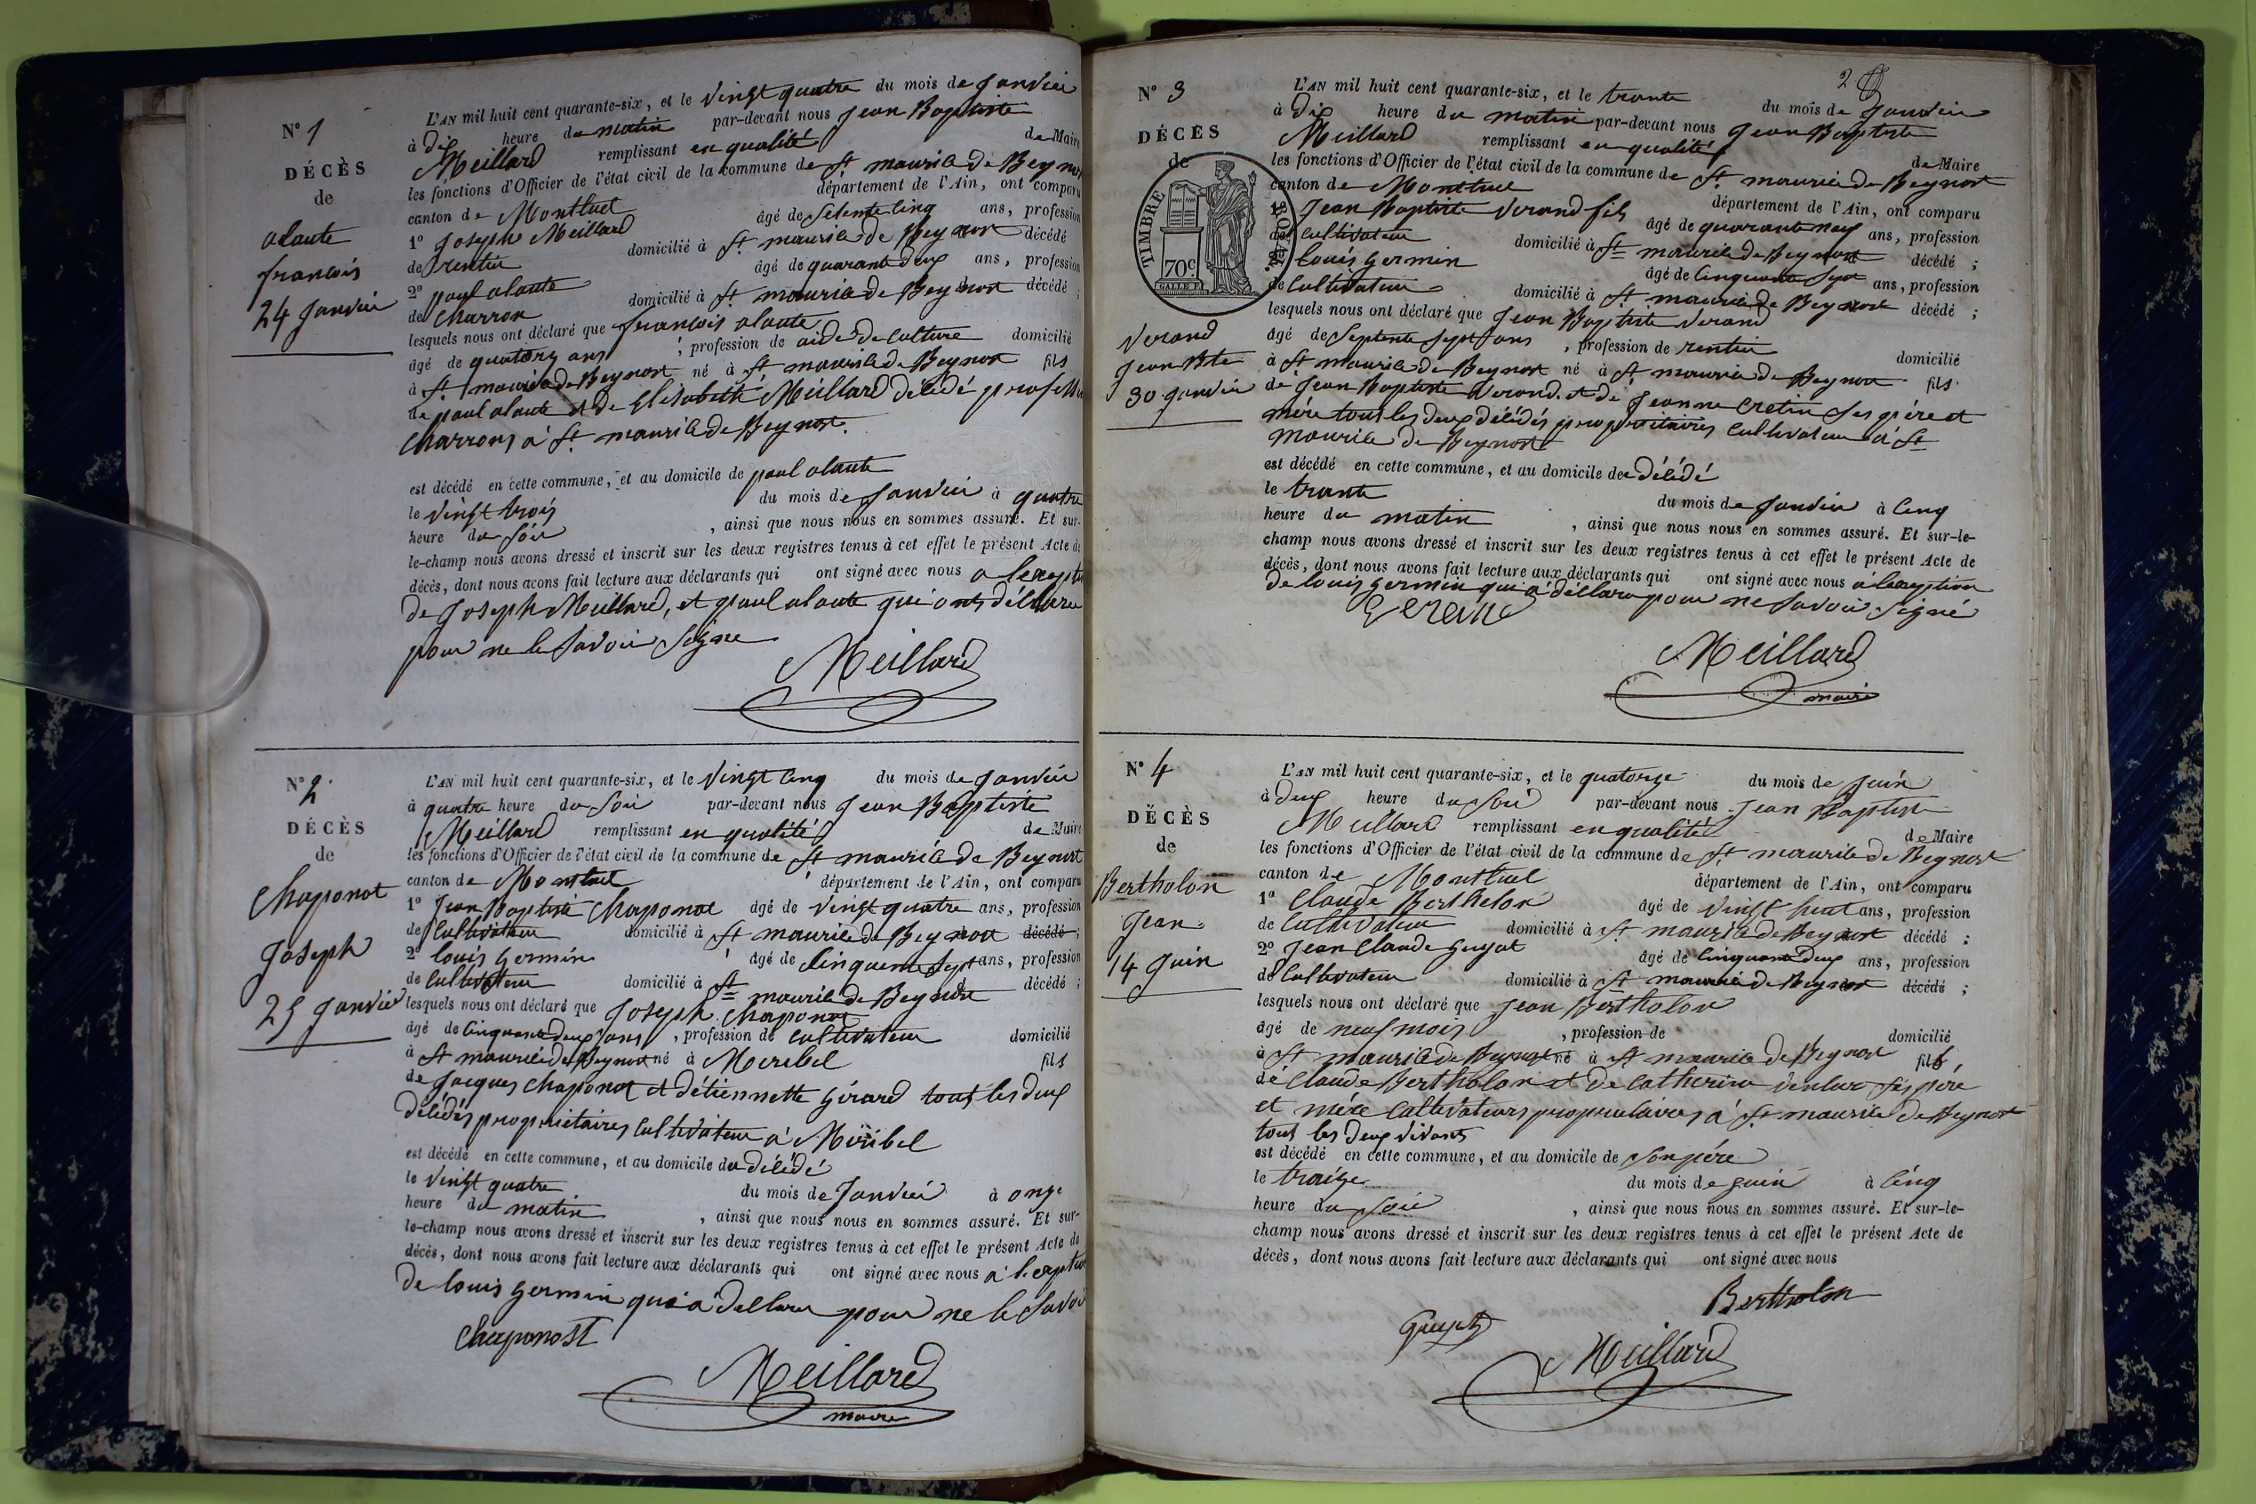 N° 1
DÉCÈS
de
alante
francois
24 Janvier
L'AN mil huit cent quarante-six, et le vingt quatre du mois de Janvier
à dix heure du matin par-devant nous Jean Baptiste
Meillard remplissant en qualité de Maire
les fonctions d'Officier de l'état civil de la commune de St maurice de Beynost
canton de Montluel département de l'Ain, ont comparu
1° Joseph Meillard âgé de Setente cinq ans, profession
de rentier domicilié à St maurice de Beynost décédé
2° paul alante âgé de quarante deux ans, profession
de charron domicilié à St maurice de Beynost décédé ;
lesquels nous ont déclaré que francois alante
âgé de quatorze ans , profession de aide de culture domicilié
à St maurice de Beynost né à St maurice de Beynost fils
de paul alante et de Elisabeth Meillard décédé
charrons à St maurice de Beynost.
est décédé en cette commune, et au domicile de paul alante
le vingt trois du mois de Janvier à quatre
heure du Soir , ainsi que nous nous en sommes assuré. Et sur-
le-champ nous avons dressé et inscrit sur les deux registres tenus à cet effet le présent Acte de
décès, dont nous avons fait lecture aux déclarants qui ont signé avec nous
de Joseph Meillard, et paul alante qui ont déclaré
pour ne le Savoir Signe
Meillard
N° 2
DÉCÈS
de
Chaponot
Joseph
25 Janvier
L'AN mil huit cent quarante-six, et le vingt cinq du mois de Janvier
à quatre heure du Soir par-devant nous Jean Baptiste
Meillard remplissant en qualité de Maire
les fonctions d'Officier de l'état civil de la commune de St maurice de Beynost
canton de Montluel département de l'Ain, ont comparu
1° Jean Baptiste Chaponot âgé de vingt quatre ans, profession
de Cultivateur domicilié à St maurice de Beynost décédé ;
2° louis Germin âgé de Cinquente Sept ans, profession
de Cultivateur domicilié à St maurice de Beynost décédé ;
lesquels nous ont déclaré que Joseph Chaponot
âgé de Cinquante deux ans , profession de Cultivateur domicilié
à St maurice de Beynost né à Meribel fils
de Jacques Chaponot et d'étiennette Gérard tout les deux
décédés propriétaires Cultivateur à Miribel
est décédé en cette commune, et au domicile du décédé
le vingt quatre du mois de Janvier à onze
heure du matin , ainsi que nous nous en sommes assuré. Et sur-
le-champ nous avons dressé et inscrit sur les deux registres tenus à cet effet le présent Acte de
décès, dont nous avons fait lecture aux déclarants qui ont signé avec nous à
de louis Germin qui à declaré pour ne le Savoir
Chaponost
Meillard
maire
2
N° 3
DÉCÈS
de
TIMBRE ROYAL
70c
Verand
Jean Bte
30 Janvier
L'AN mil huit cent quarante-six, et le trante du mois de Janvier
à dix heure du matin par-devant nous Jean Baptiste
Meillard remplissant en qualité de Maire
les fonctions d'Officier de l'état civil de la commune de St maurice de Beynost
canton de Montluel département de l'Ain, ont comparu
Jean Baptiste Verand fils âgé de quarante neuf ans, profession
de Cultivateur domicilié à St maurice de Beynost décédé ;
louis Germin âgé de Cinquante Sept ans, profession
de Cultivateur domicilié à St maurice de Beynost décédé ;
lesquels nous ont déclaré que Jean Baptiste Verand
âgé de Septente Sept ans , profession de rentier domicilié
à St maurice de Beynost né à St maurice de Beynost fils
de Jean Baptiste Verand et de Jeanne Cretin Ses père et
mère tout les deux décédés propriétaires Cultivateur à St
maurice de Beynost
est décédé en cette commune, et au domicile de décédé
le trante du mois de Janvier à Cinq
heure du matin , ainsi que nous nous en sommes assuré. Et sur-le-
champ nous avons dressé et inscrit sur les deux registres tenus à cet effet le présent Acte de
décès, dont nous avons fait lecture aux déclarants qui ont signé avec nous
de louis Germin qui à déclaré pour ne Savoir Signé
Meillard
maire
N° 4
DÉCÈS
de
Bertholon
Jean
14 Juin
L'AN mil huit cent quarante-six, et le quatorze du mois de Juin
à deux heure du Soir par-devant nous Jean Baptiste
Meillard remplissant en qualité de Maire
les fonctions d'Officier de l'état civil de la commune de St maurice de Beynost
canton de Montluel département de l'Ain, ont comparu
1° Claude Bertholon âgé de vingt huit ans, profession
de Cultivateur domicilié à St maurice de Beynost décédé ;
2° Jean Claude Guyot âgé de Cinquante deux ans, profession
de Cultivateur domicilié à St maurice de Beynost décédé ;
lesquels nous ont déclaré que Jean Bertholon
âgé de neuf mois , profession de domicilié
à St maurice de Beynost né à St maurice de Beynost fils
de Claude Bertholon et de Catherine Ses père
et mère Cultivateurs propriétaires à St maurice de Beynost
tout les deux vivants
est décédé en cette commune, et au domicile de Son père
le traize du mois de Juin à Cinq
heure du Soir , ainsi que nous nous en sommes assuré. Et sur-le-
champ nous avons dressé et inscrit sur les deux registres tenus à cet effet le présent Acte de
décès, dont nous avons fait lecture aux déclarants qui ont signé avec nous
Bertholon
Guyot
Meillard